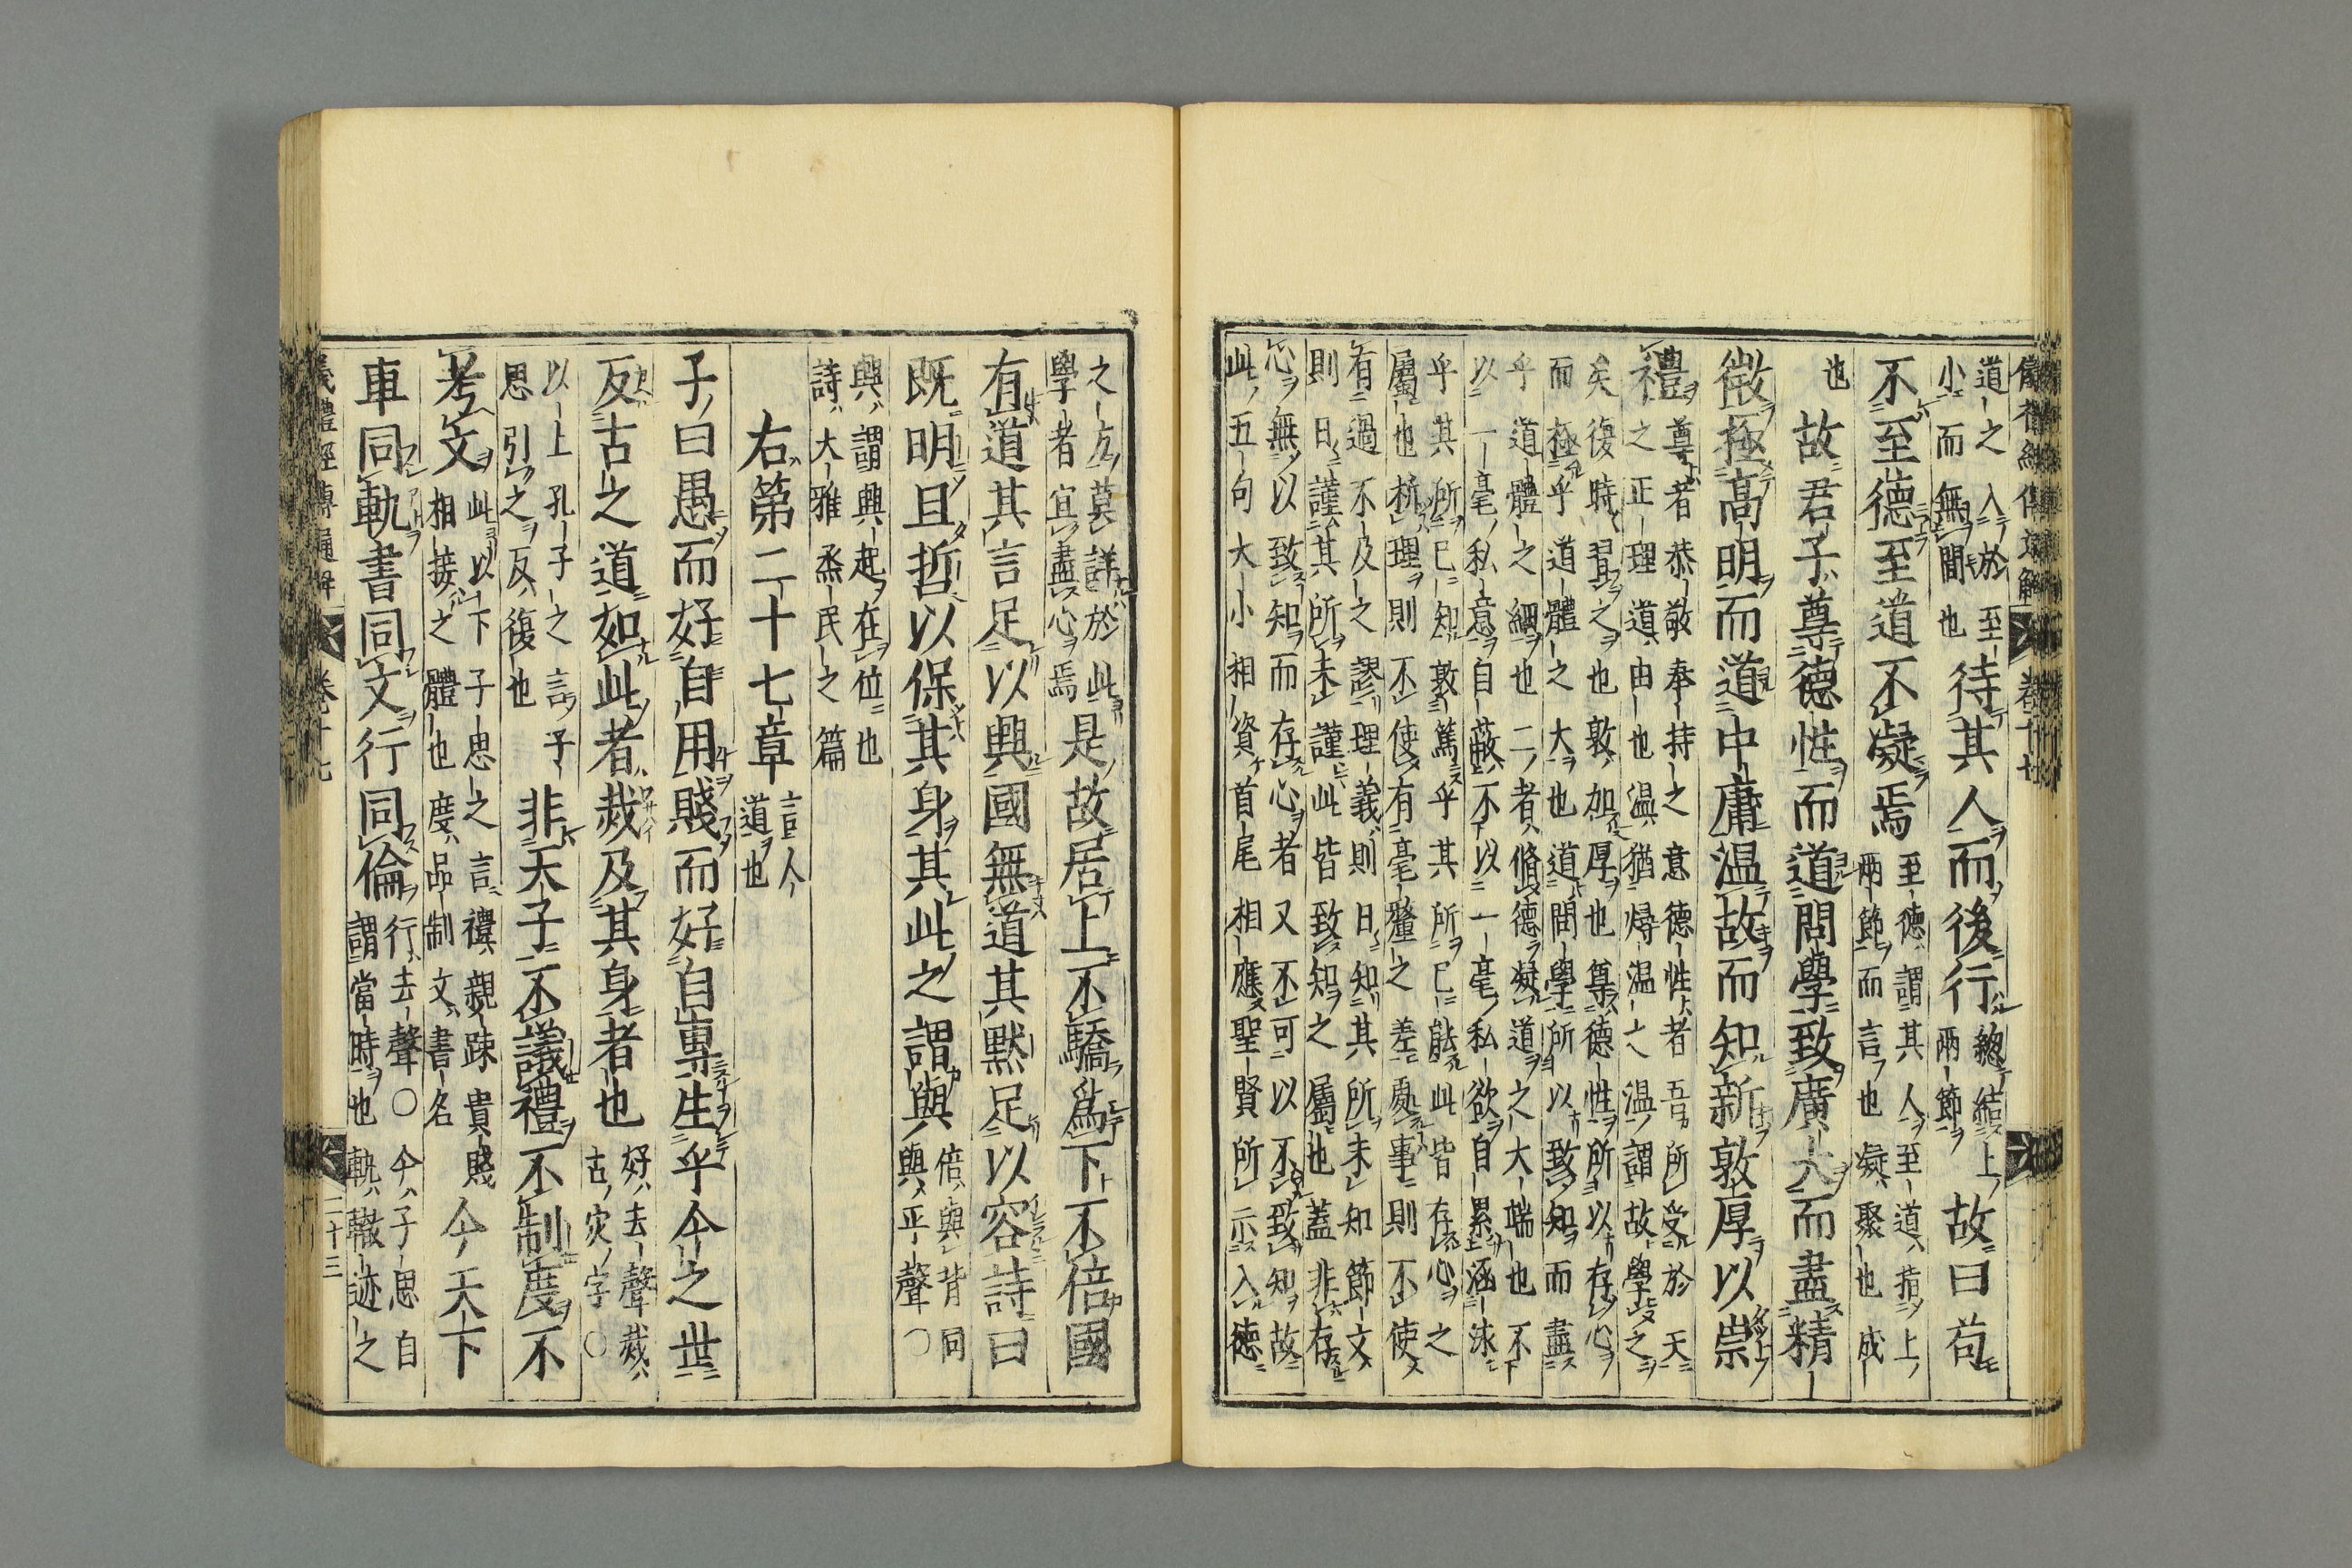 儀禮經傳通解 卷十七
道之入於至
小而無間也
待其人而後行
總結上
兩節
故曰苟
不至德至道不凝焉
至德謂其人至道指上
兩節而言也凝聚也成
也
故君子尊德性而道問學致廣大而盡精
微極高明而道中庸温故而知新敦厚以崇
禮
尊者恭敬奉持之意德性者吾所受於天
之正理道由也温猶燖温之温謂故學之
矣復時習之也敦加厚也尊德性所以存心
而極乎道體之大也道問學所以致知而盡
乎道體之細也二者脩德凝道之大端也不
以一毫私意自蔽不以一毫私欲自累涵泳
乎其所已知敦篤乎其所已能此皆存心之
屬也析理則不使有毫釐之差處事則不使
有過不及之謬理義則日知其所未知節文
則日謹其所未謹此皆致知之屬也蓋非存
心無以致知而存心者又不可以不致知故
此五句大小相資首尾相應聖賢所示入德
之方莫詳於此
學者宜盡心焉
是故居上不驕爲下不倍國
有道其言足以興國無道其默足以容詩曰
既明且哲以保其身其此之謂與
倍與背同
與平聲○
興謂興起在位也
詩大雅烝民之篇
右第二十七章
言人
道也
子曰愚而好自用賤而好自專生乎今之世
反古之道如此者烖及其身者也
好去聲烖
古灾字○
以上孔子之言子
思引之反復也
非天子不議禮不制度不
考文
此以下子思之言禮親疎貴賤
相接之體也度品制文書名
今天下
車同軌書同文行同倫
行去聲○今子思自
謂當時也軌轍迹之
儀禮經傳通解 卷十七 二十三